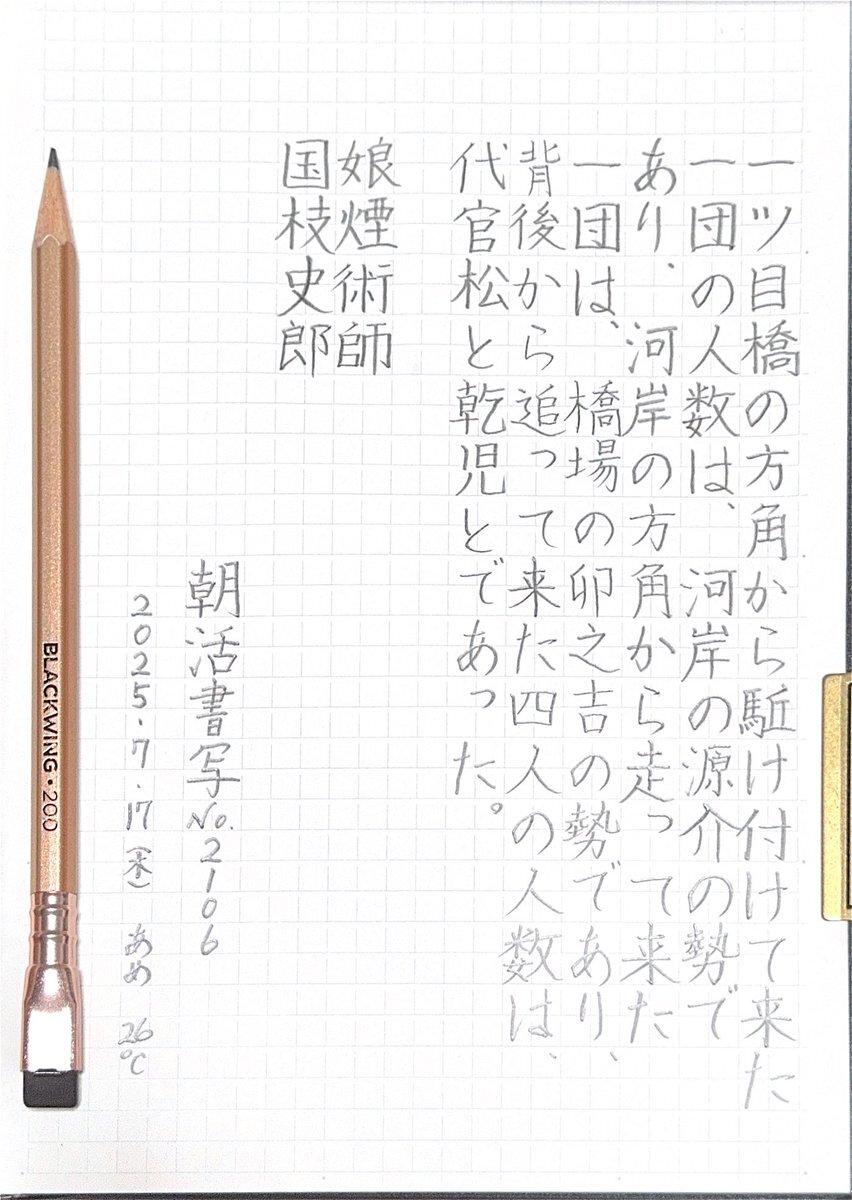 一ツ目橋の方角から駈け付けて来た
一団の人数は、河岸の源介の勢で
あり、河岸の方角から走って来た
一団は、橋場の卯之吉の勢であり、
背後から追って来た四人の人数は、
代官松と乾児とであった。
娘煙術師
国枝史郎
朝活書写No.2106
2025.7.17(木) あめ 26℃
BLACKWING・200